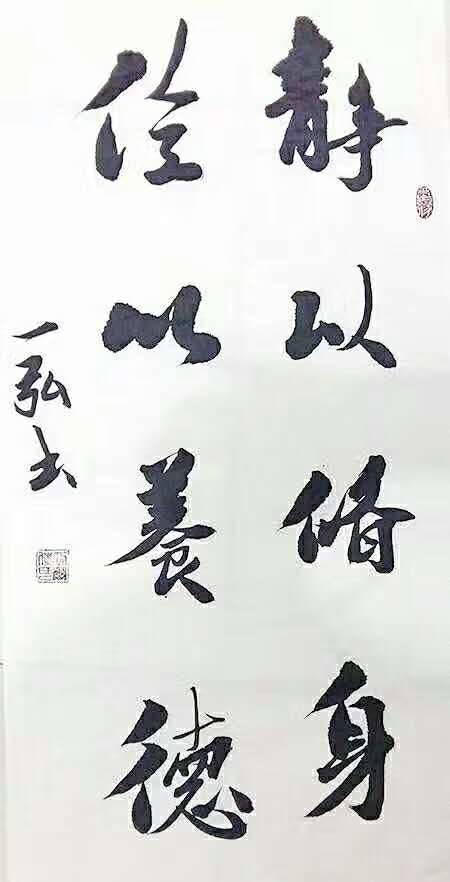 静以脩身
俭以養德
一弘书